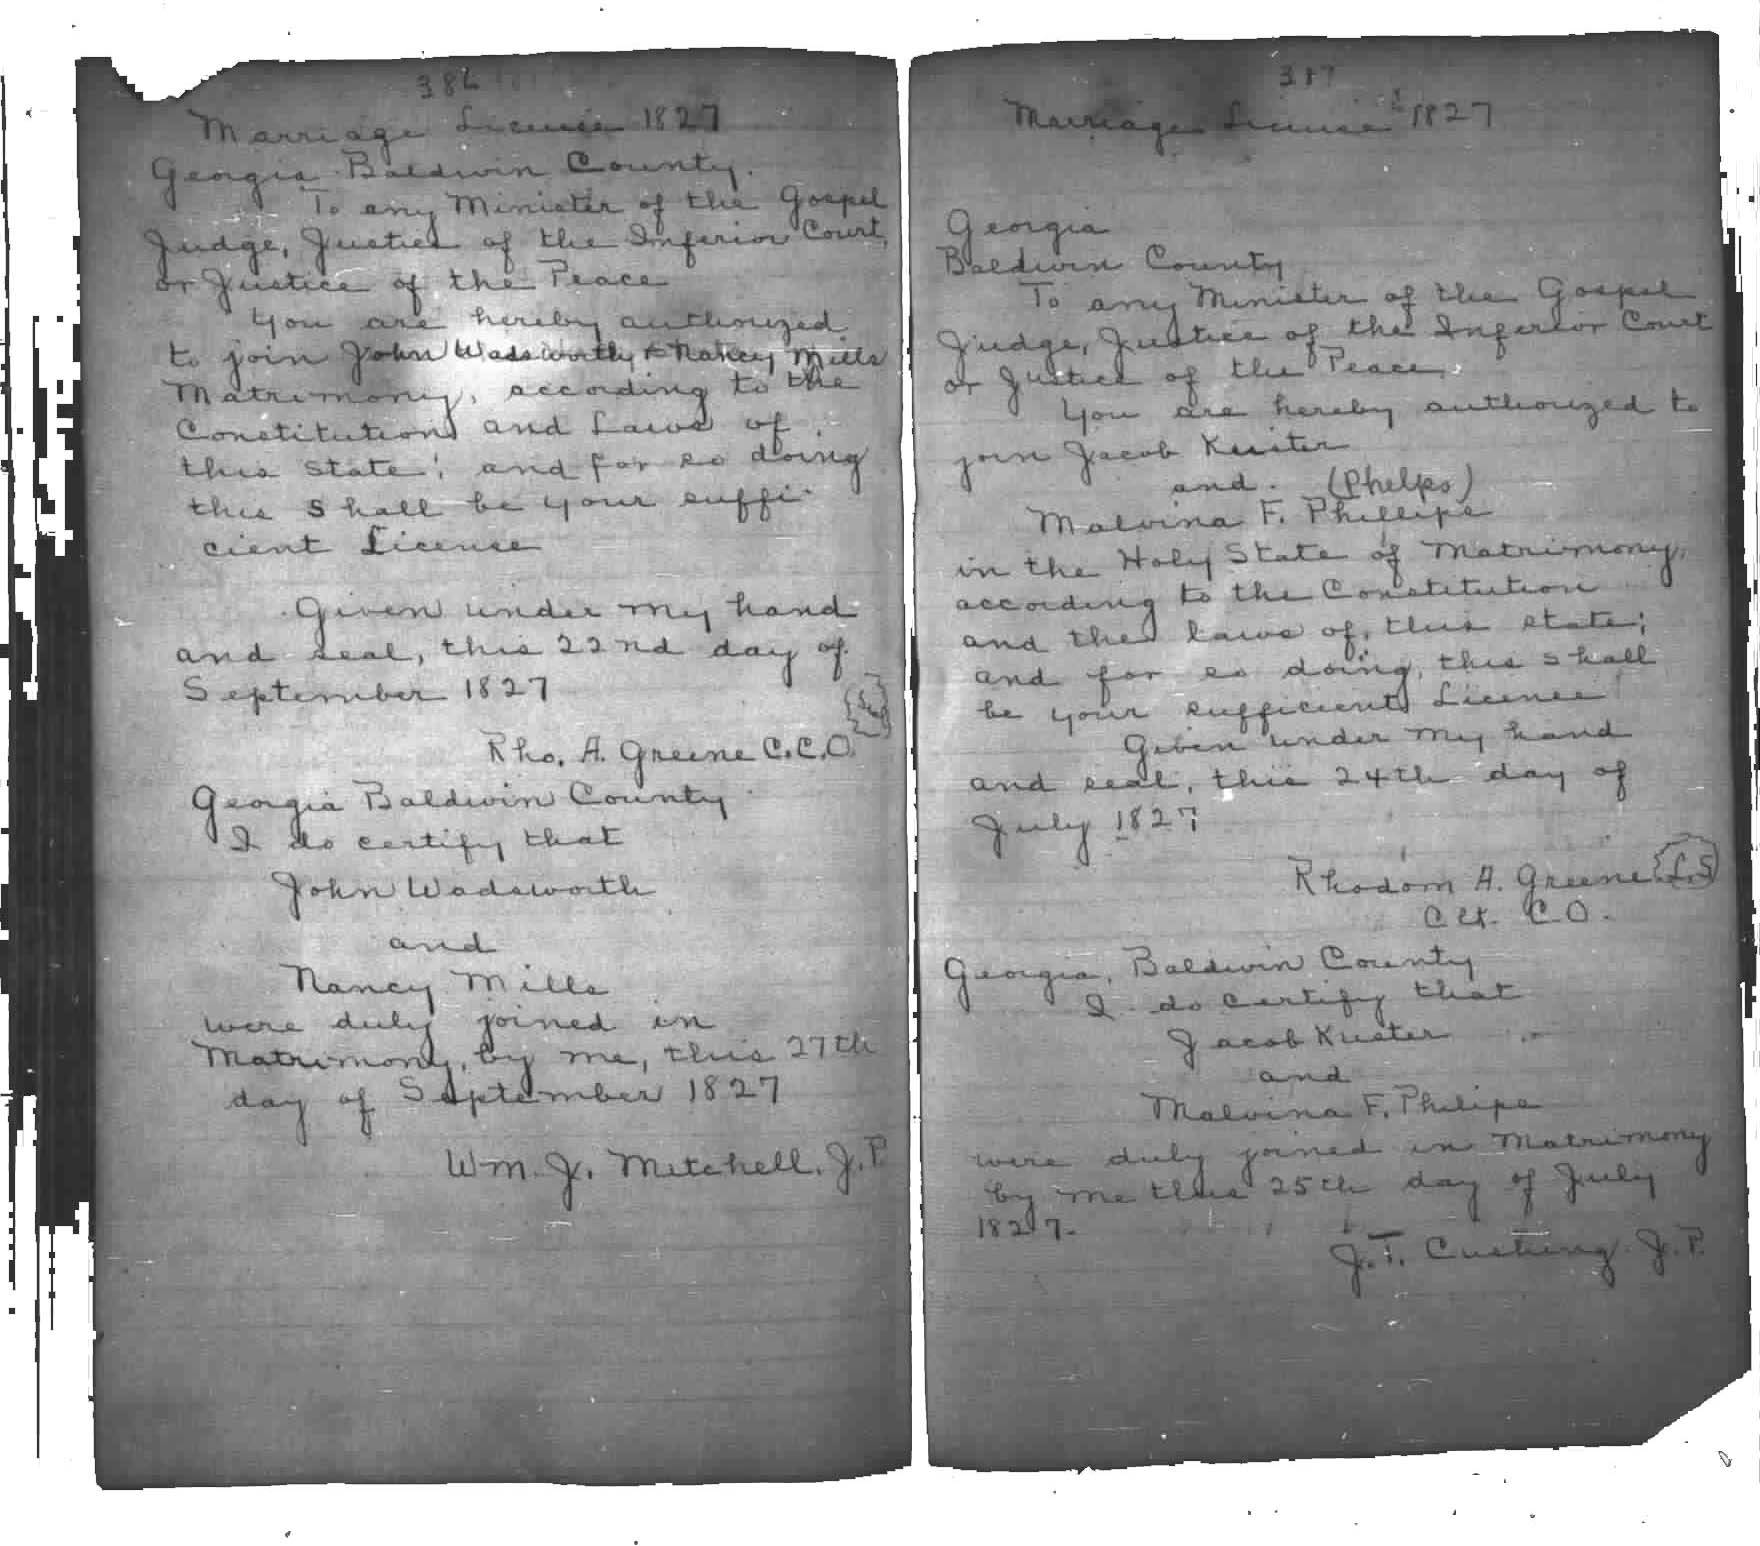 386
Marriage License 1827
Georgia Baldwin County.
To any Minister of the Gospel
Judge, Justice of the Inferior Court,
or Justice of the Peace
You are hereby authorized
to join John Wadsworth & Nancy Mills
Matrimony, according to the
Constitution and Laws of
this State; and for so doing
this shall be your suffi-
cient License
Given under my hand
and seal, this 22nd day of
September 1827
Rho. A. Greene C.C.O.
Georgia Baldwin County
I do certify that
John Wadsworth
and
Nancy Mills
were duly joined in
Matrimony, by me, this 27th
day of September 1827
Wm. J. Mitchell, J.P.
387
Marriage License 1827
Georgia
Baldwin County
To any Minister of the Gospel
Judge, Justice of the Inferior Court
or Justice of the Peace.
You are hereby authorized to
join Jacob Kuster
and. (Phelps)
Malvina F. Phillips
in the Holy State of Matrimony,
according to the Constitution
and the laws of, this state;
and for so doing, this shall
be your sufficient License
Given under my hand
and seal, this 24th day of
July 1827
Rhodom A. Greene L.S
Clk. C.O.
Georgia, Baldwin County
I do certify that
Jacob Kuster
and
Malvina F. Philips
were duly joined in Matrimony
by me this 25th day of July
1827.
J.T. Cushing. J.P.